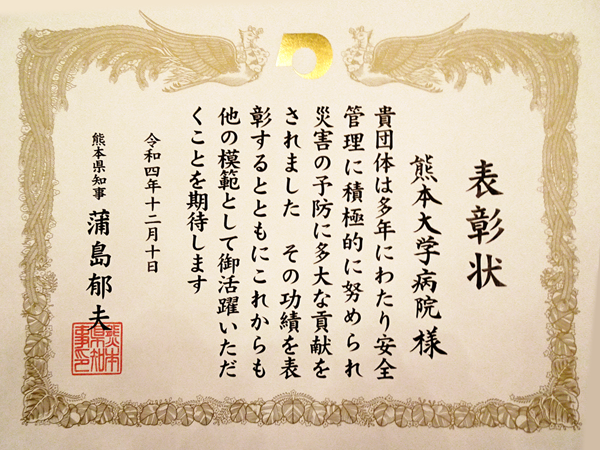 表彰状
熊本大学病院 様
貴団体は多年にわたり安全
管理に積極的に努められ
災害の予防に多大な貢献を
されました その功績を表
彰するとともにこれからも
他の模範として御活躍いただ
くことを期待します
令和四年十二月十日
熊本県知事 蒲島郁夫
熊本
県知
事印